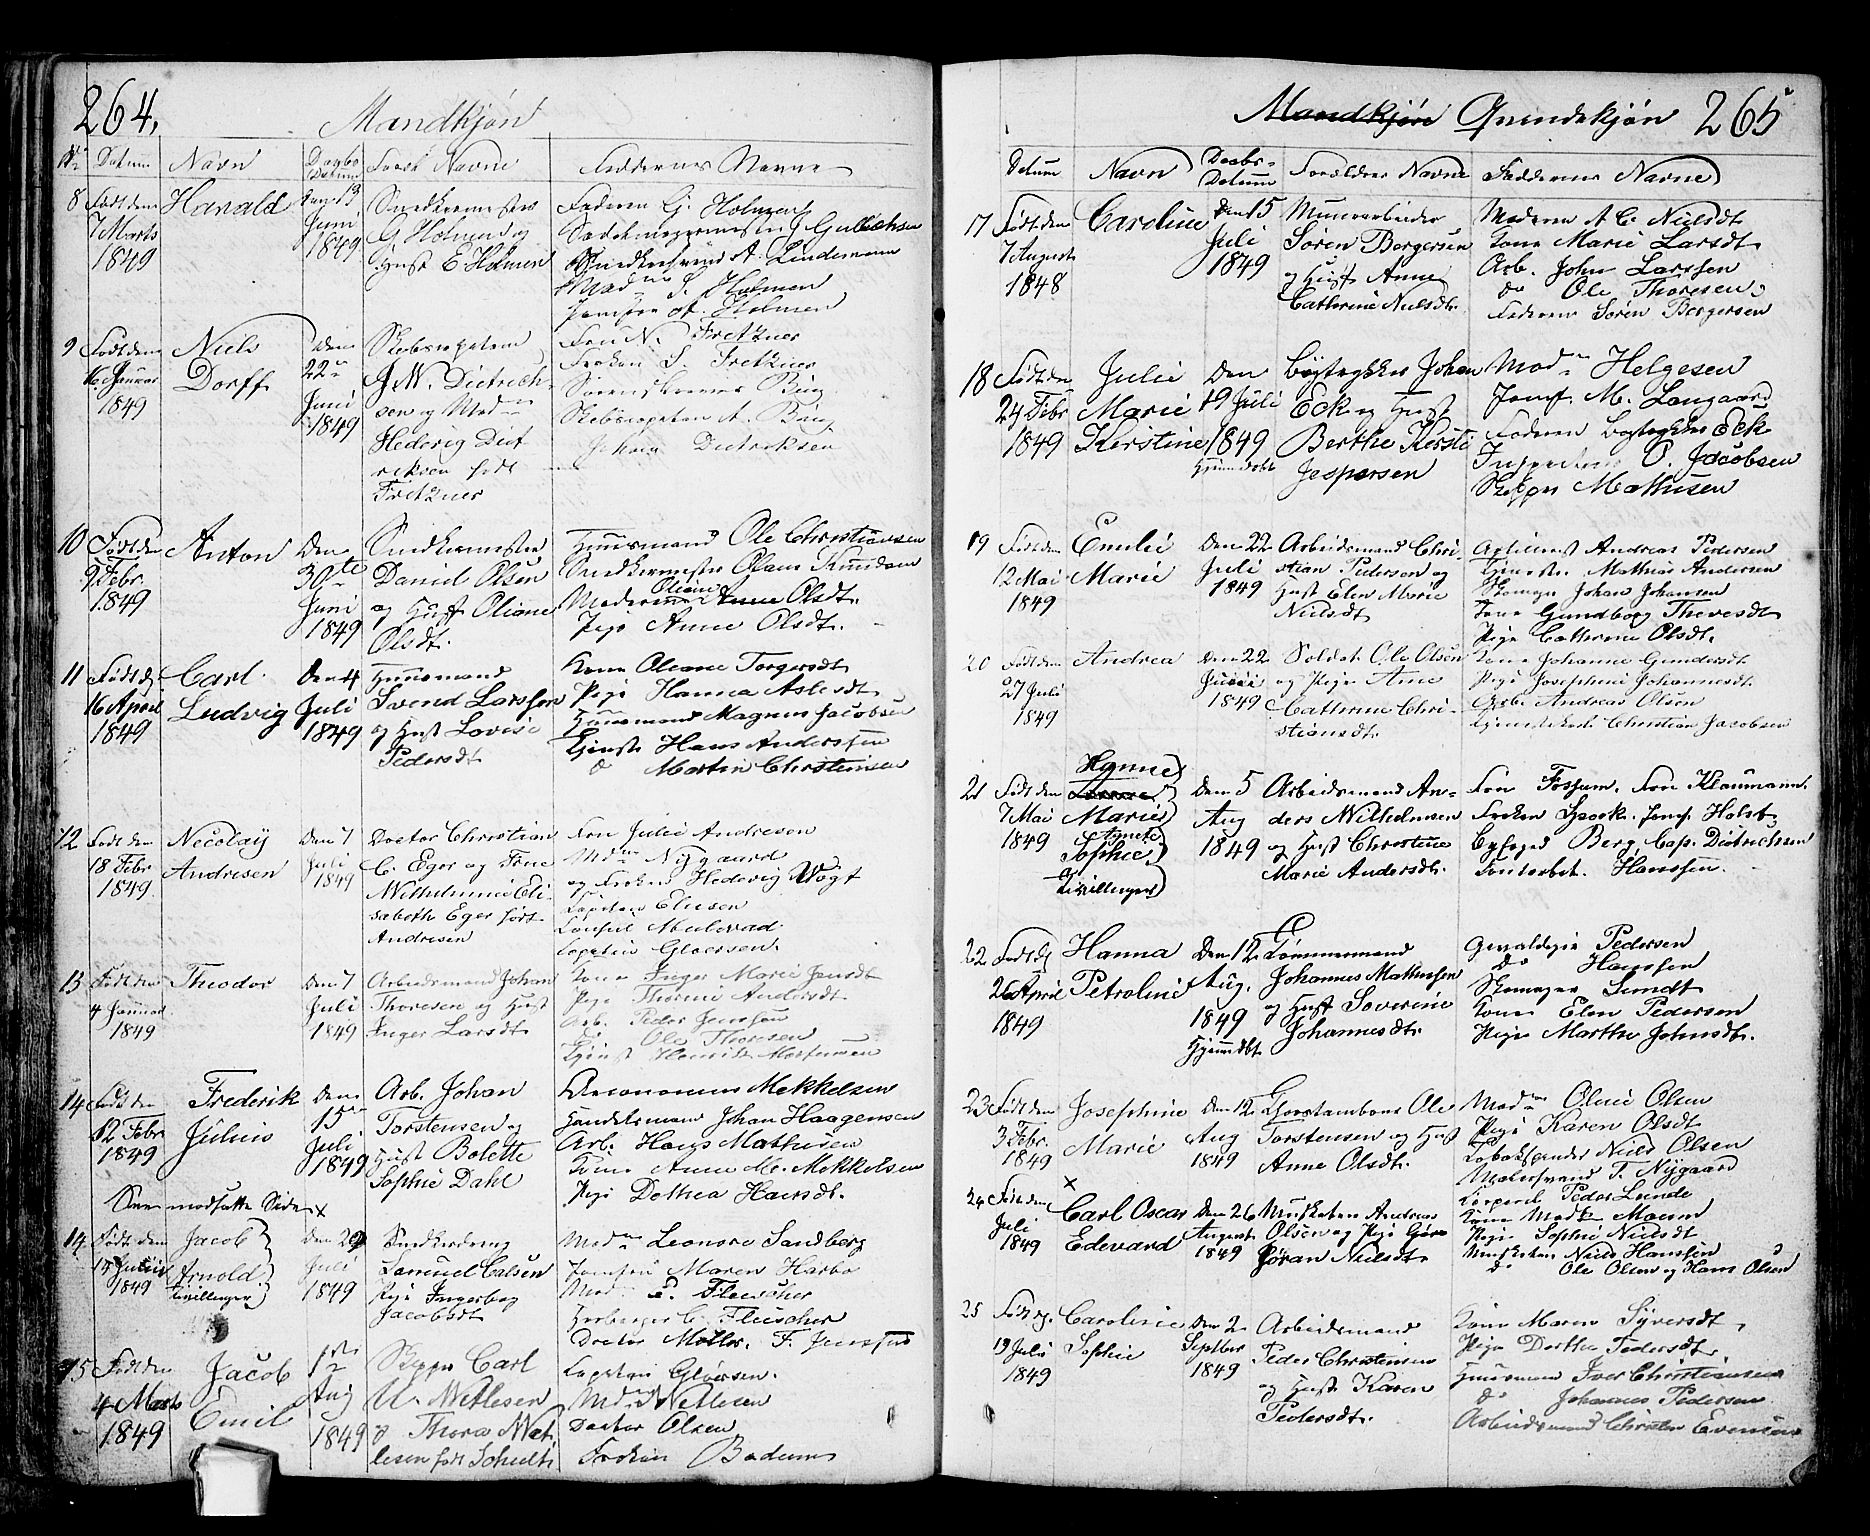 264.
Mandkjøn
No Datum Navn Daabs Datum Navne Faddernes Navne
8 Født den 7 Marts 1849
Harald
13 Juni 1849
Snedkermester
G Holmen og
Hust E Holmen
Faderen G. Holmen
Gulbichsen
Snedkersvend A. Lindemann
Madm S. Holmen
Jomfru A. Holmen
9 Født den 16 Januar 1849
Niels
Dorff
Den 22 Juni 1849
Skibscapitain
J W. Dietrich-
sen og Madm
Hedevig Diet
riksen født
Fretzner
Fru N. Fretzner
Frøken S. Fretzner
Sorenskriver Bug
Skibscapitain A. Bøe
Johan Dietriksen
10 Født den 9 Febr. 1849
Anton
Den 30te Juni 1849
Snedkermester
Daniel Olsen
og Hust Oliane
Olsdt.
Huusmand Ole Christiansen
Snedkermester Olaus Knudsen
Moderen Oliane Olsdt.
Pige Anne Olsdt.
11 Født d. 16 April 1849
Carl
Ludvig
Den 4 Juli 1849
Huusmand
Svend Larssen
og Hust Lovise
Pedersdt
Kone Oleane Torgersdt
Pige Hanna Aslesdt
Huusmand Magnus Jacobsen
Tjenst Hans Anderssen
do Martin Christensen
12 Født den 18 Febr 1849
Nicolay
Andresen
Den 7 Juli 1849
Doctor Christian
C. Eger og Frue
Wilhelmine Eli-
sabeth Eger født
Andresen
Fru Julie Andresen
Madm Nygaard
og Frøken Hedevig Vogt
Capitain Eliesen
Consul Mulvad
Capitain Gløersen.
13 Født den 4 Januar 1849
Theodor
Den 7 Juli 1849
Arbeidsmand Johan
Thoresen og Hust
Inger Larsdt
Kone Inger Marie Jensdt
Pige Thorine Andersdt
Arb. Peder Jenssen
do Ole Thoresen
Tjenst Henrik Mortensen
14 Født den 12 Febr 1849
Frederik
Julius
Den 15 Juli 1849
Arb. Johan
Torstensen og
Hust Bolette
Sophie Dahl
Oeconomus Mekkelsen
Handelsmand Johan Haagensen
Arb. Hans Mathisen
Kone Anne M. Mekkelsen
Pige Dothea Hansdt.
See modsatte Side x
14 Født den Juni 1849
Jacob
Arnold
Tvillinger
Den 29 Juli 1849
Snedkerdreng
Samuel Carlsen
Pige Ingeborg
Jacobsdt
Madm Leonore Sandberg
Jomfru Maren Harbo
Madm P. Fleischer
C. Fleischer
Doctor Møller. F. Jenssen
15 Født den 4 Marts 1849
Jacob
Emil
1ste Aug 1849
Skipper Carl
U. Wetlesen
og Thora Wet
lesen født Schult
Capitain Gløersen.
Madm Wetlesen
Doctor Olsen
Frøken Bødtker
Mandkjøn Qvindekjøn 265
Datum Navn Daabs-Datum Forældres Navne Faddernes Navne
17 Født den 7 August 1848
Caroline
Den 15 Juli 1849
Muurarbeider
Søren Bergersen
og Hust Anne
Cathrine Nielsdt.
Moderen A C. Nielsdt
Kone Marie Larsdt
Arb. John Larssen
do Ole Thoresen
Faderen Søren Bergersen
18 Født den 24 Febr 1849
Julie
Marie
Kirstine
Den 19 Juli 1849
Hjemmedøbt
Bogtrykker Johan
Eck og Hust
Berthe Kersti
Jespersen
Madm Helgesen
Jomf. M. Langaard
Faderen Bogtrykker Eck
Inspecteur O. Jacobsen
Skipper Mathisen
19 Født den 12 Mai 1849
Emilie
Marie
Den 22 Juli 1849
Arbeidsmand Chri-
stian Pedersen og
Hust Elen Marie
Nielsdt
Artillerist Andreas Pedersen
Tjenestk. Mathias Andersen
Skomager Johan Johansen
Kone Gundborg Thoresdt
Pige Cathrine Olsdt.
20 Født den 27 Juli 1849
Andrea
Den 22 Juli 1849
Soldat Ole Olsen
og Pige Anne
Cathrine Chri-
stiansdt.
Kone Johanne Gundersdt
Pige Josephine Johannesdt
Arb. Andreas Olsen
Tjenestekarl Christian Jacobsen
21 Født den 7 Mai 1849
Hanne
Marie
Agnete
Sophie
og
Tvillinger
Den 5 Aug 1849
Arbeidsmand An-
ders Wilhelmsen
og Hust Christine
Marie Andersdt.
Fru Fossum. Fru Klaumann.
Frøken Spørck. Jomf. Holst
Byfoged Berg. Cap. Dietrichsen
Hanssen.
22 Født d. 26 April 1849
Hanna
Petroline
Den 12 Aug. 1849
Hjemmdbt
Tømmermand
Johannes Mathissen
og Hust Severine
Johannesdt.
Gevaldiger Pedersen
do Hanssen
Skomager Sundt
Kone Elen Pedersen
Pige Marthe Johnsdt.
23 Født den 3 Febr. 1849
Josephine
Marie
Den 12 Aug 1849
Ole
Torstensen og Hust
Anne Olsdt.
Madm Oline Olsen
Pige Karen Olsdt
Tobakspinder Niels Olsen
Malersvend T. Nygaard
Corporal Peder Lunde
24 Født den Juli 1849
x
Carl Oscar
Edevard
Den 26 August 1849
Musketeer Andreas
Olsen og Pige
Gøran Nielsdt
Kone Madm Moerm
Pige Sophie Nielsdt
Musketeer Niels Hanssen
do Ole Olsen og Hans Olsen
25 Født d. 19 Juli 1849
Caroline
Sophie
Den 2 Septbr 1849
Arbeidsmand
Peder Christensen
og Hust Karen
Pedersdt.
Kone Maren Syversdt
Pige Dorthe Pedersdt
Huusmand Iver Christiansen
do Johannes Pedersen
Arbeidsmand Christen Evensen